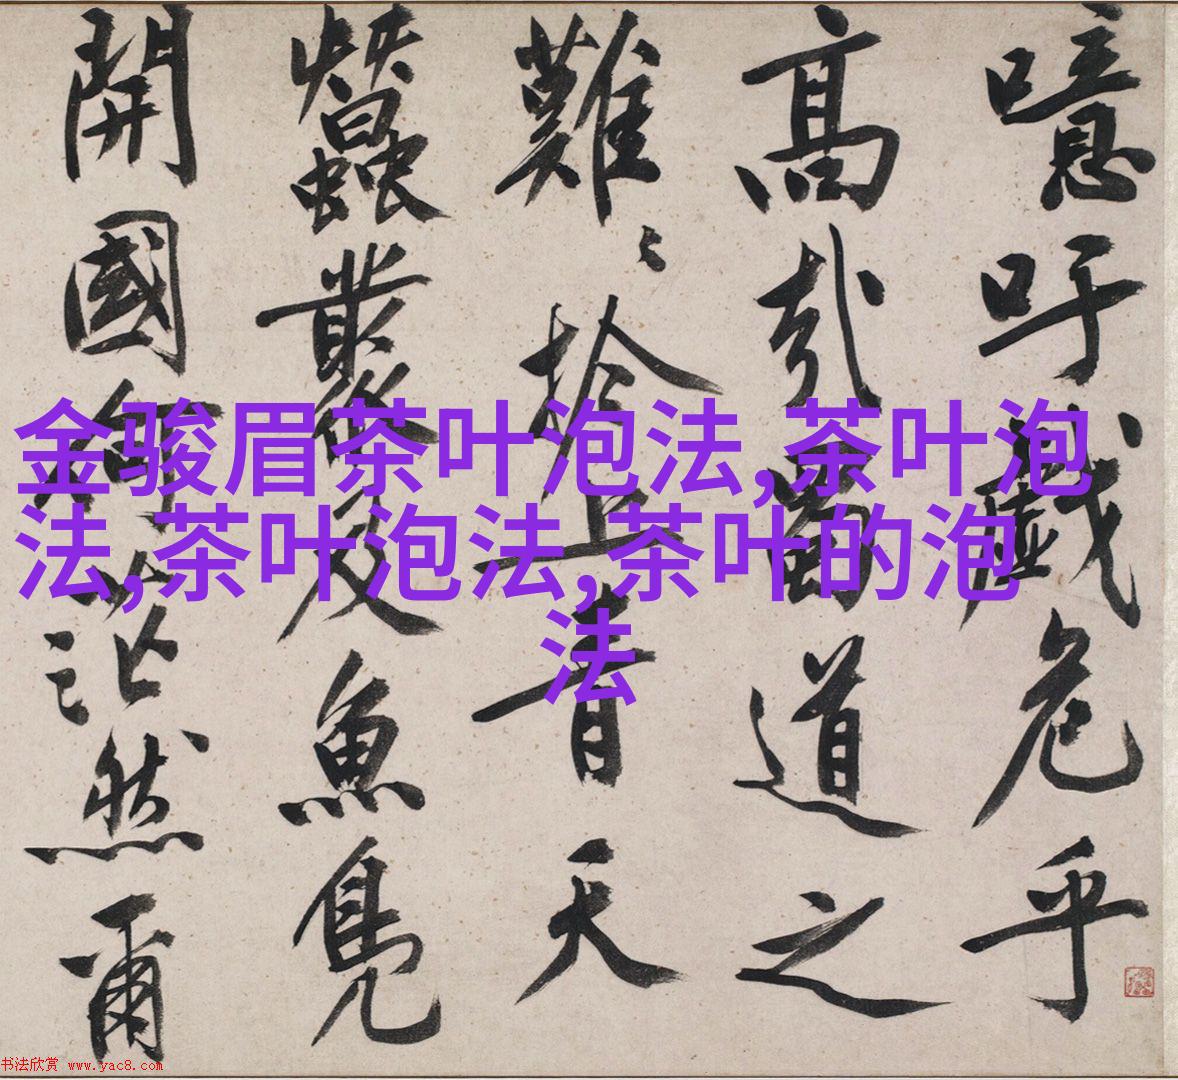 噫吁戲危乎
高哉蜀道之
難〻於上青天
蠶叢及魚鳧
開國何茫然爾
金骏眉茶叶泡法,茶叶泡
法,茶叶泡法,茶叶的泡
法
书法欣赏 www.yac8.com